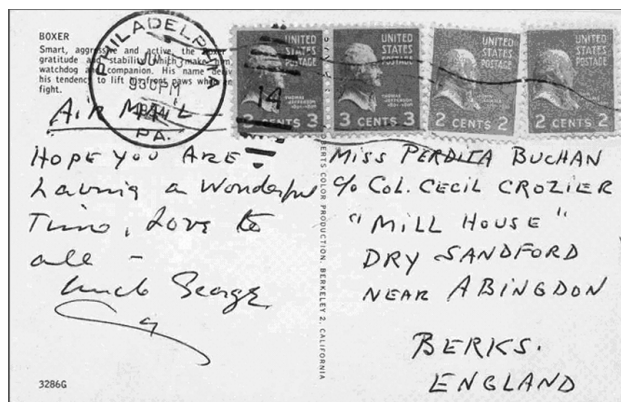 BOXER
Smart, aggressive and active, the boxer
gratitude and stability which make him
watchdog and companion. His name
his tendency to lift front paws when
fight.
PHILADELPHIA
930 PM
PA.
14
UNITED STATES POSTAGE
THOMAS JEFFERSON
3 CENTS 3
UNITED STATES POSTAGE
THOMAS JEFFERSON
3 CENTS 3
UNITED STATES POSTAGE
2 CENTS 2
UNITED STATES POSTAGE
2 CENTS 2
AIR MAIL
HOPE YOU ARE
having a wonderful
Time, Love to
all –
Uncle George
COLOR PRODUCTION, BERKELEY 2, CALIFORNIA
MISS PERDITA BUCHAN
c/o COL. CECIL CROZIER
"MILL HOUSE"
DRY SANDFORD
NEAR ABINGDON
BERKS.
ENGLAND
3286G